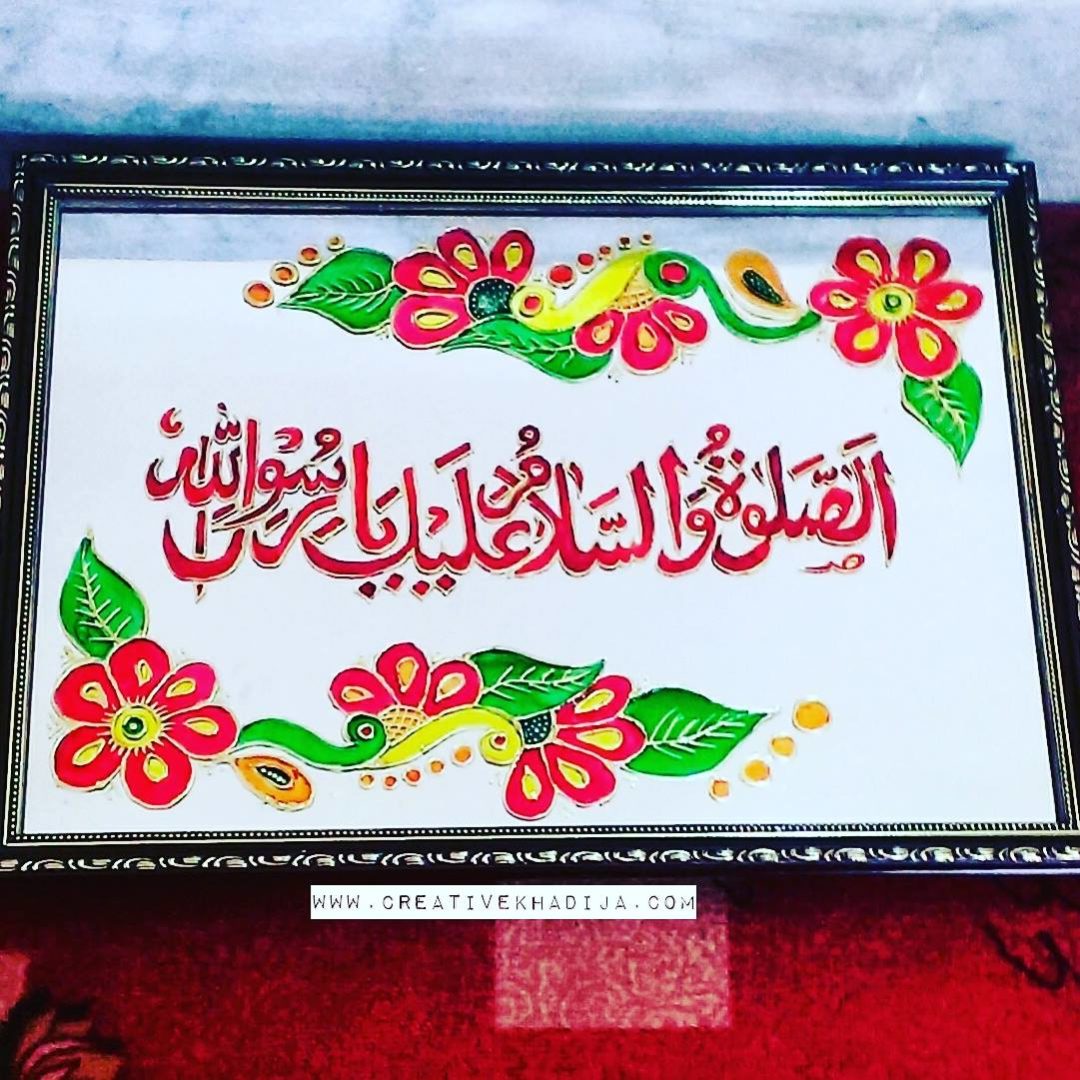 الصَّلٰوةُ وَالسَّلَامُ عَلَيْكَ يَا رَسُوْلَ اللّٰهِ
WWW.CREATIVEKHADIJA.COM